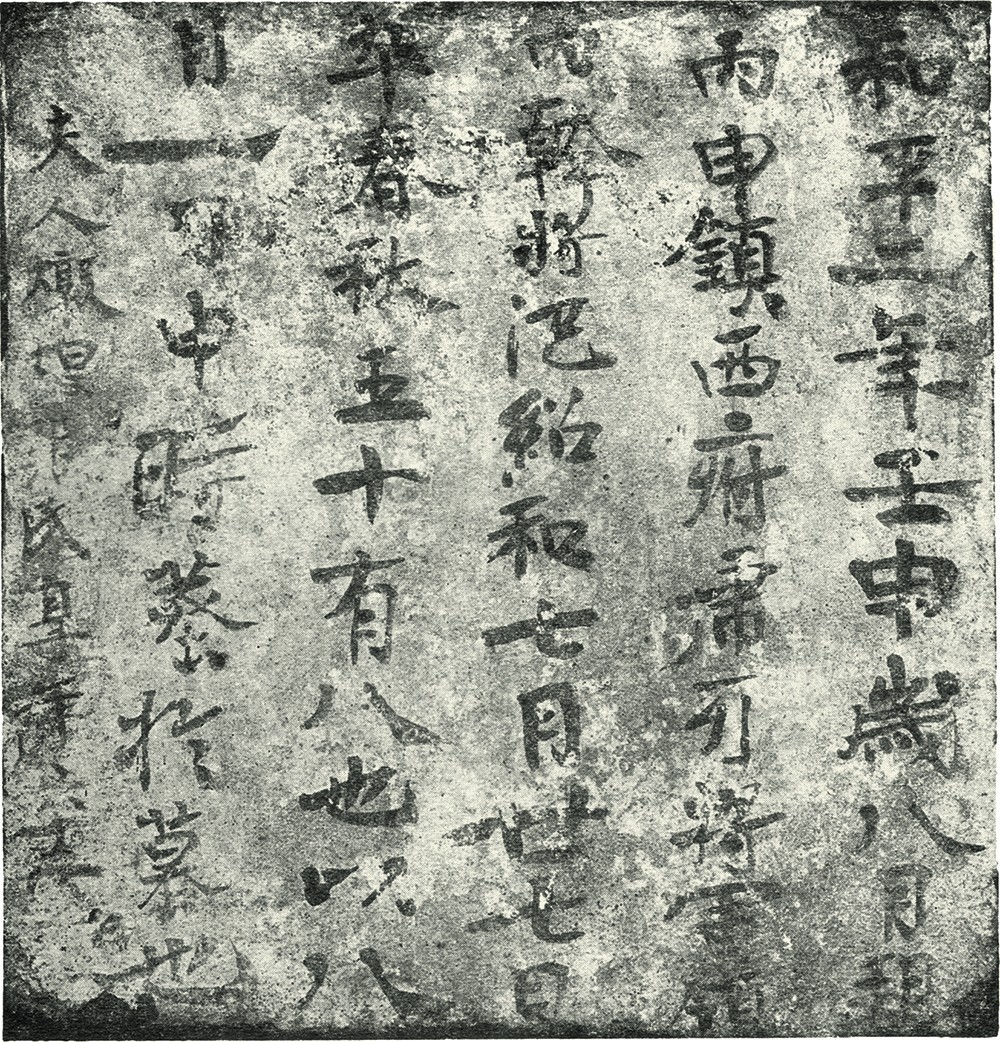 和平二年壬申歲八月朔
丙申鎮西府虎牙將軍領
內幹將氾紹和七月廿七日
卒春秋五十有八也以八
月一日申時葬於墓也
夫人燉煌張氏